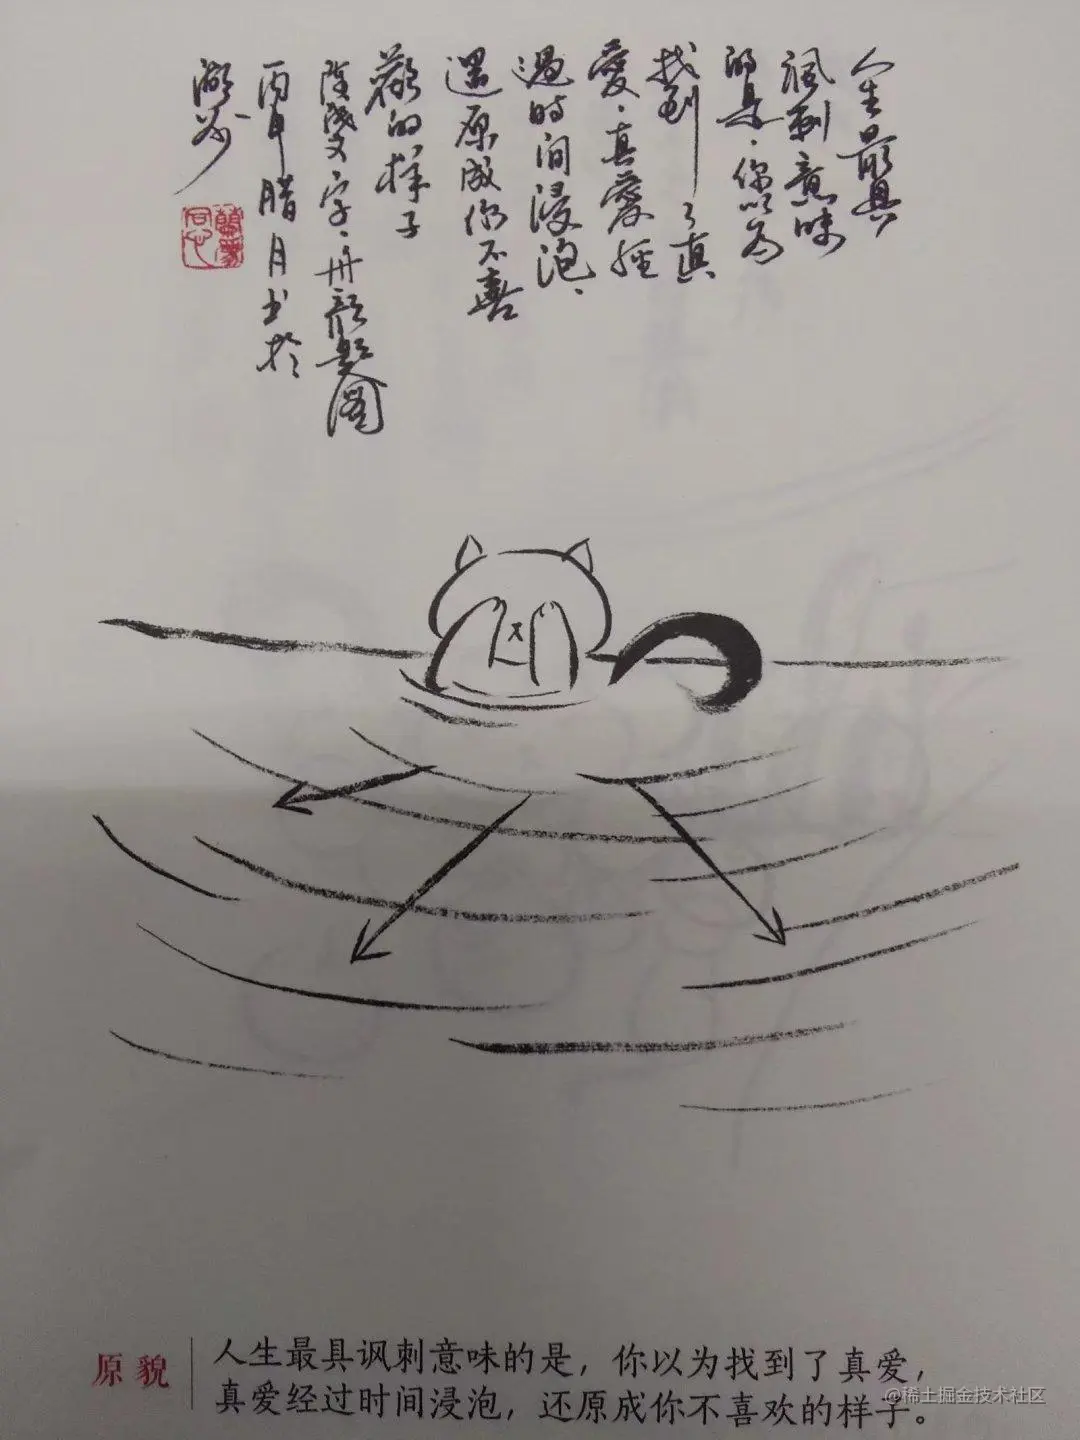 人生最具
讽刺意味
的是，你以为
找到了真
愛，真愛經
過时间浸泡，
還原成你不喜
歡的样子
文字，题图
丙申腊月书於
湖州
原貌
人生最具讽刺意味的是，你以为找到了真爱，
真爱经过时间浸泡，还原成你不喜欢的样子。
@稀土掘金技术社区